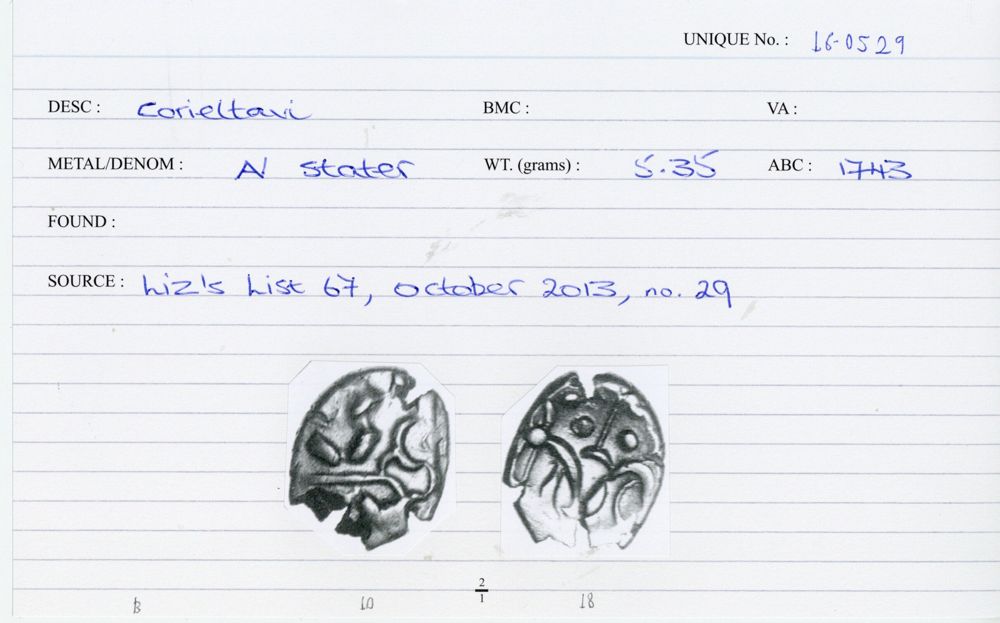 UNIQUE No. : 16-0529
DESC : Corieltavi BMC : VA :
METAL/DENOM : AV stater WT. (grams) : 5.35 ABC : 1743
FOUND :
SOURCE : Liz's List 67, October 2013, no. 29
2
1
B 10 18